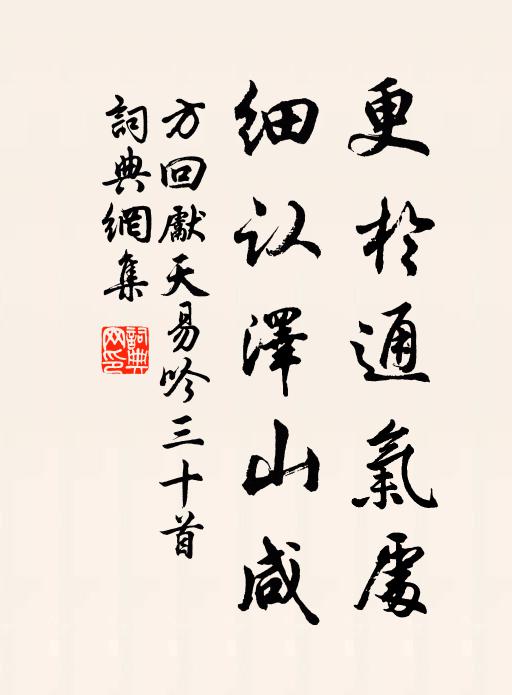 更於通氣處
細认澤山咸
方回獻天易吟三十首
詞典網集
詞典網印